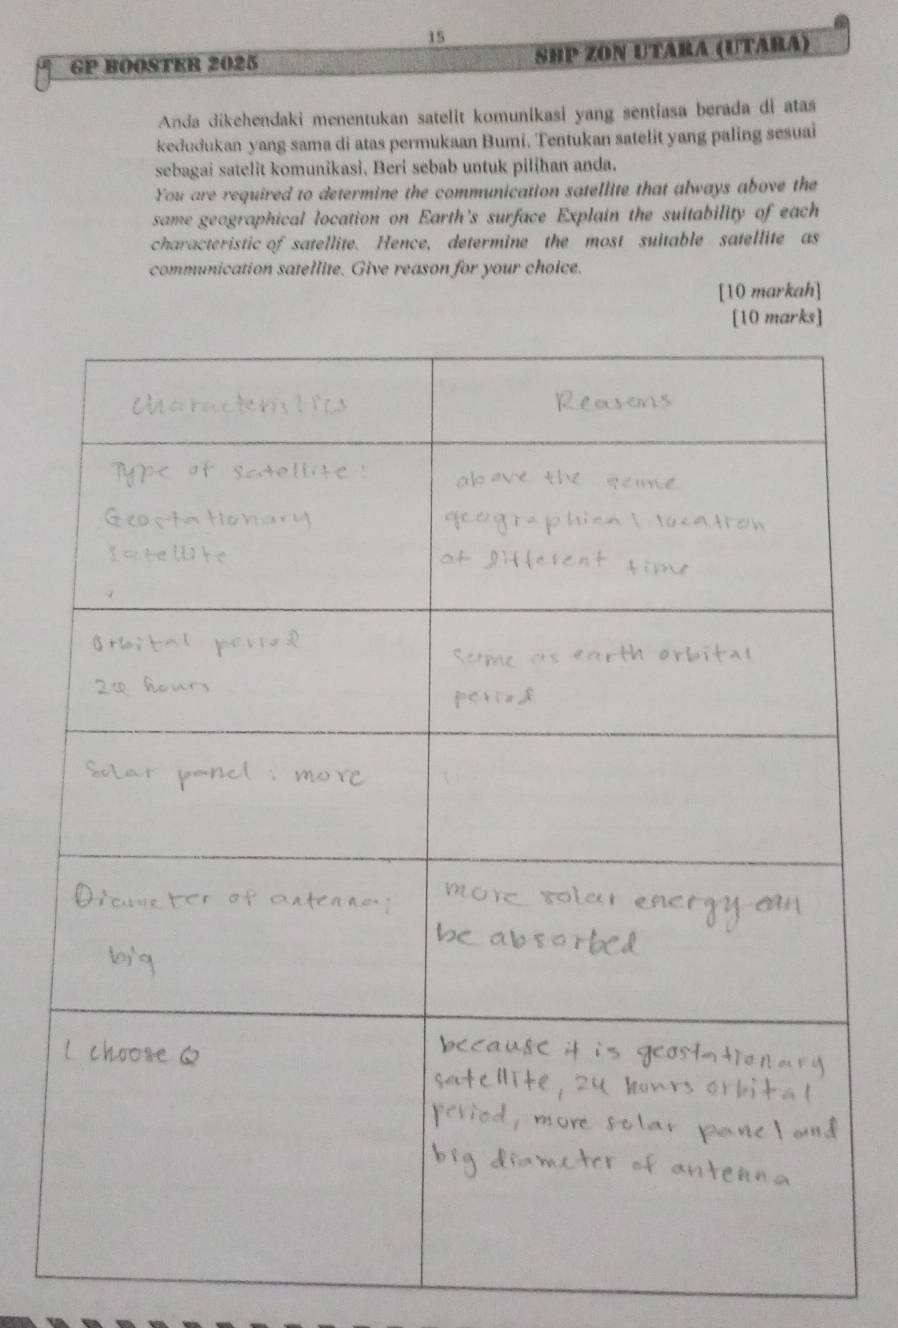 15
GP BOOSTER 2025
SBP ZON UTARA (UTARA)
Anda dikehendaki menentukan satelit komunikasi yang sentiasa berada di atas
kedudukan yang sama di atas permukaan Bumi. Tentukan satelit yang paling sesuai
sebagai satelit komunikasi. Beri sebab untuk pilihan anda.
You are required to determine the communication satellite that always above the
same geographical location on Earth's surface Explain the suitability of each
characteristic of satellite. Hence, determine the most suitable satellite as
communication satellite. Give reason for your choice.
[10 markah]
[10 marks]
characteristics
Reasons
Type of satellite:
Geostationary
satellite
above the same
geographical location
at different time
orbital period
hours
same as earth orbital
period
Solar panel : more
Diameter of antenna:
big
more solar energy can
be absorbed
I choose Q
because it is geostationary
satellite, 24 hours orbital
period, more solar panel and
big diameter of antenna